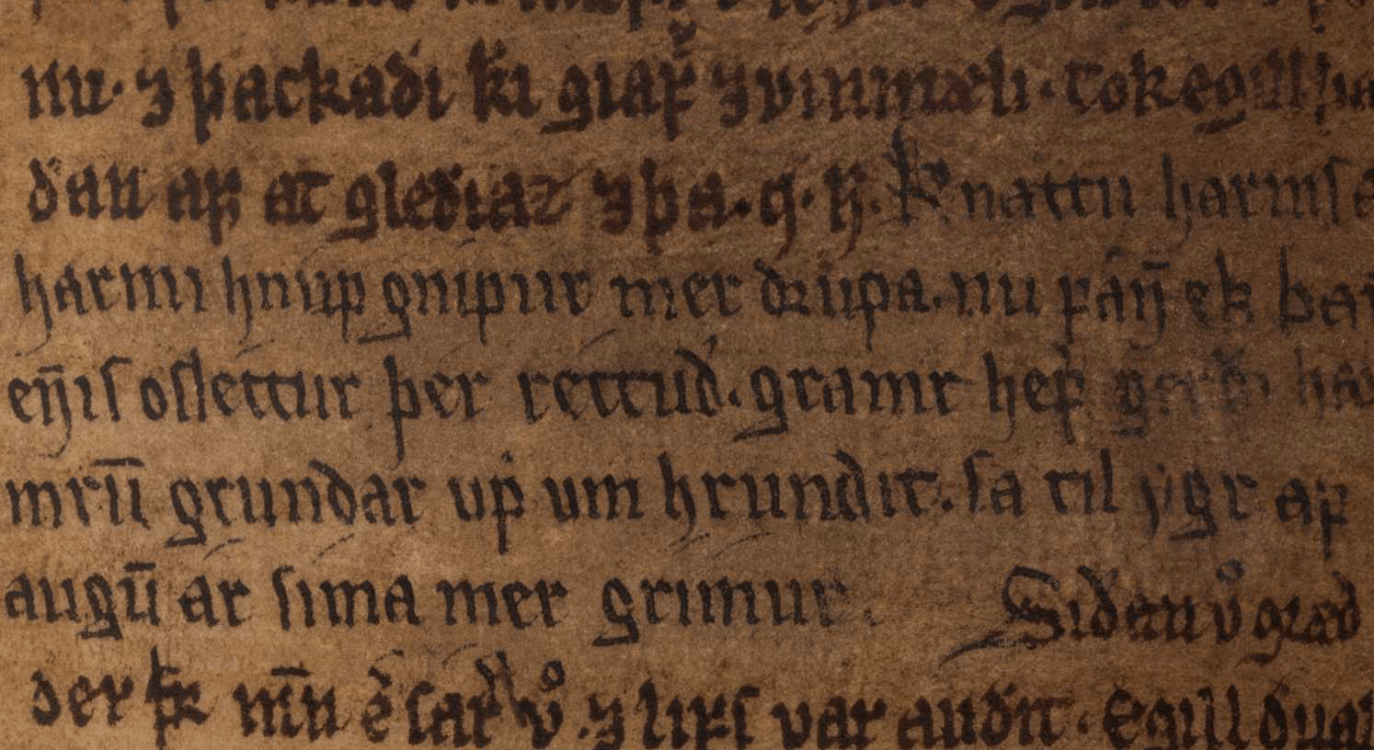 nu · ⁊ þackaði kí giaꝼ ⁊ vinmæli · Tok egill þa
ðan aꝼ at gleðiaz ⁊ þa · q · h̅ · Knattu harms a
harmi hnup gnipur mer dꝛupa . nu ꝼan̅ ek
en̅is osléttur þer rettud́ . gramr heꝼ̇
mrū grundar uṗ um hrundit . sa til ẏgr aꝼ
augū ar sima mer grimur .
Siðan vͦ græd
der þr̅ m̅n ẻ sar vͦ . ⁊ liꝼs var auðit · Egill dual